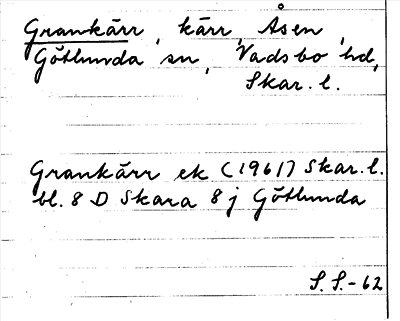 Grankärr, kärr, Åsen,
Götlunda sn, Vadsbo hd,
Skar. l.
Grankärr ek (1961) Skar. l.
bl. 8 D Skara 8 j Götlunda
S. S. - 62